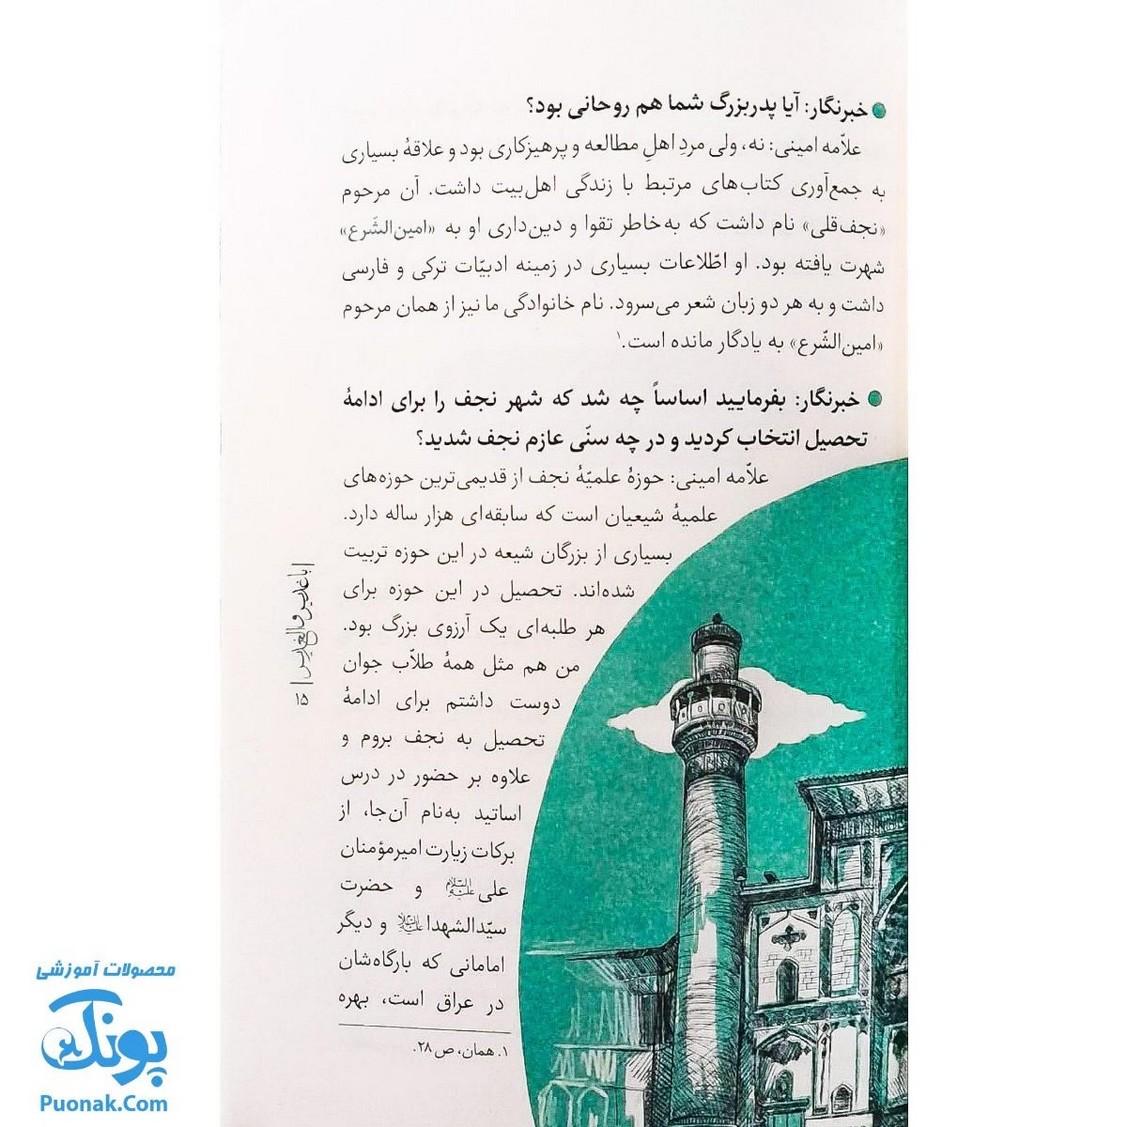 خبرنگار: آیا پدربزرگ شما هم روحانی بود؟
علاّمه امینی: نه، ولی مردِ اهلِ مطالعه و پرهیزکاری بود و علاقهٔ بسیاری
به جمع‌آوری کتاب‌های مرتبط با زندگی اهل‌بیت داشت. آن مرحوم
«نجف‌قلی» نام داشت که به‌خاطر تقوا و دین‌داری او به «امین‌الشَّرع»
شهرت یافته بود. او اطّلاعات بسیاری در زمینه ادبیّات ترکی و فارسی
داشت و به هر دو زبان شعر می‌سرود. نام خانوادگی ما نیز از همان مرحوم
«امین‌الشّرع» به یادگار مانده است.۱
خبرنگار: بفرمایید اساساً چه شد که شهر نجف را برای ادامهٔ
تحصیل انتخاب کردید و در چه سنّی عازم نجف شدید؟
علاّمه امینی: حوزهٔ علمیّهٔ نجف از قدیمی‌ترین حوزه‌های
علمیهٔ شیعیان است که سابقه‌ای هزار ساله دارد.
بسیاری از بزرگان شیعه در این حوزه تربیت
شده‌اند. تحصیل در این حوزه برای
هر طلبه‌ای یک آرزوی بزرگ بود.
من هم مثل همهٔ طلاّب جوان
دوست داشتم برای ادامهٔ
تحصیل به نجف بروم و
علاوه بر حضور در درس
اساتید به‌نام آن‌جا، از
برکات زیارت امیرمؤمنان
علی علیه‌السلام و حضرت
سیّدالشهدا علیه‌السلام و دیگر
امامانی که بارگاه‌شان
در عراق است، بهره
۱. همان، ص ۲۸.
با غدیر و الغدیر
۱۵
محصولات آموزشی
پونک
Puonak.Com